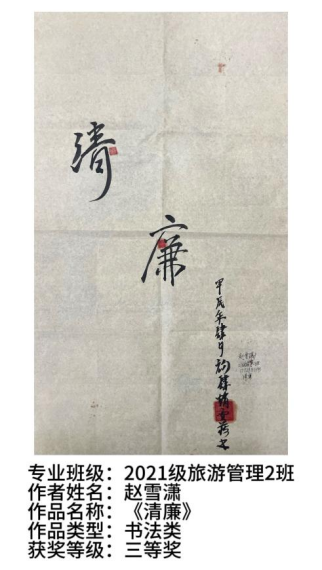 清
廉
甲辰年肆月
专业班级：2021级旅游管理2班
作者姓名：赵雪潇
作品名称：《清廉》
作品类型：书法类
获奖等级：三等奖